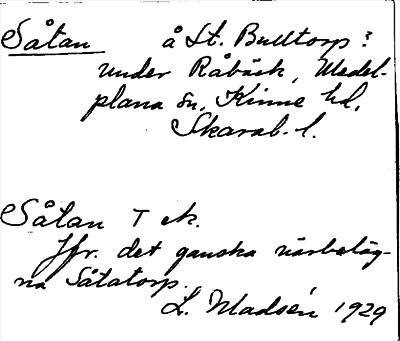 Såtan å St. Bulltorp?
under Råbäck, Medel-
plana sn, Kinne hd,
Skarab. l.
Såtan T ek.
Jfr. det ganska närbeläg-
na Såtatorp.
L. Madsén 1929